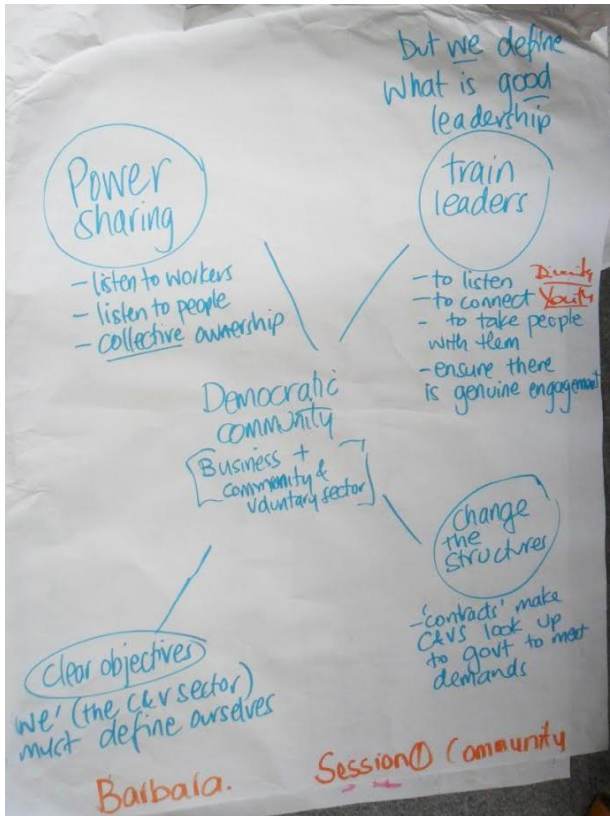 but we define
what is good
leadership
Power
sharing
- listen to workers
- listen to people
- collective ownership
train
leaders
- to listen
- to connect Youth
- to take people
with them
- ensure there
is genuine engagement
Democratic
community
[Business +
community &
voluntary sector]
change
the
structures
- 'contracts' make
C&VS look up
to govt to meet
demands
clear objectives
'we' (the C&V sector)
must define ourselves
Barbara.
Session ① Community